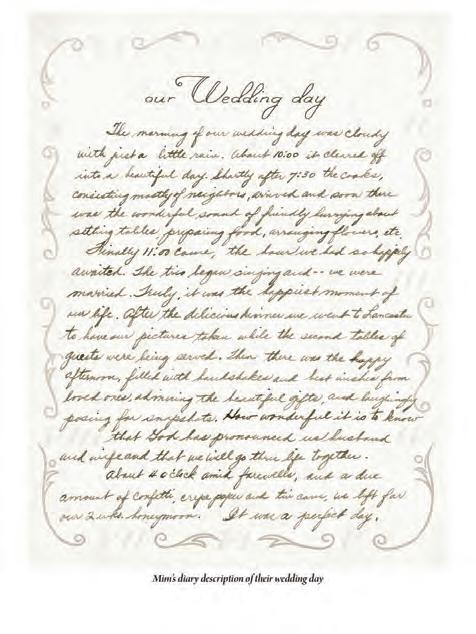 our Wedding day
The morning of our wedding day was cloudy
with just a little rain. About 10:00 it cleared off
into a beautiful day. Shortly after 7:30 the cooks,
consisting mostly of neighbors, arrived and soon there
was the wonderful sound of friendly hurrying about
setting tables, preparing food, arranging flowers, etc.
Finally 11:00 came, the hour we had so happily
awaited. The trio began singing and -- we were
married. Truly, it was the happiest moment of
our life. After the delicious dinner we went to Lancaster
to have our pictures taken while the second tables of
guests were being served. Then there was the happy
afternoon, filled with handshakes and best wishes from
loved ones, admiring the beautiful gifts, and laughingly
posing for snapshots. How wonderful it is to know
that God has pronounced us husband
and wife and that we will go thru life together.
About 4 o'clock amid farewells, and a due
amount of confetti, crepe paper and tin cans, we left for
our 2 wks. honeymoon. It was a perfect day.
Mim's diary description of their wedding day